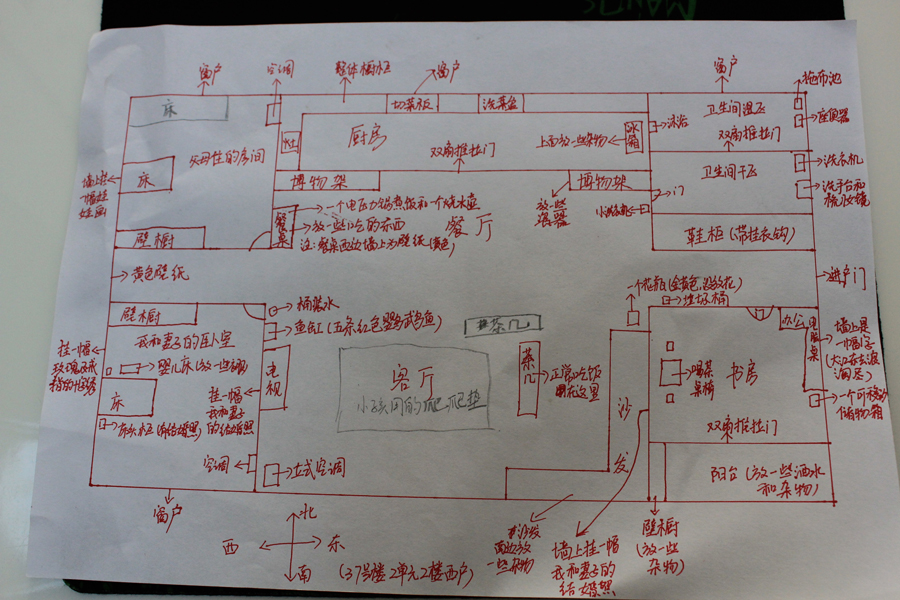 窗户
空调
整体橱柜
窗户
窗户
拖布池
床
切菜板
洗菜盆
卫生间湿区
座便器
灶
厨房
冰箱
沐浴
双扇推拉门
父母住的房间
双扇推拉门
上面放一些杂物
卫生间干区
洗衣机
床
墙上挂
一幅娃
娃画
博物架
博物架
门
洗手台和
梳妆镜
餐桌
一个电压力锅煮饭和一个烧水壶
放一些吃的东西
注:餐桌西边墙上为壁纸(黄色)
餐厅
放一些
瓷器
壁橱
鞋柜(带挂衣钩)
黄色壁纸
进户门
壁橱
桶装水
鱼缸(五条红色鹦鹉鱼)
茶几
垃圾桶
办公
电脑桌
我和妻子的卧室
挂一幅
婴儿床(放一些被)
电视
客厅
小孩用的爬爬垫
茶几
正常吃饭
用在这里
喝茶
桌椅
书房
墙上是
一幅字
床
挂一幅
我和妻子
的结婚照
床头柜(结婚照)
双扇推拉门
一个可移动
储物箱
空调
立式空调
沙
发
阳台(放一些洒水
和杂物)
窗户
北
西
东
南
(37号楼2单元2楼西户)
沙发
西边放
一些杂物
墙上挂一幅
我和妻子的
结婚照
壁橱
(放一些
杂物)